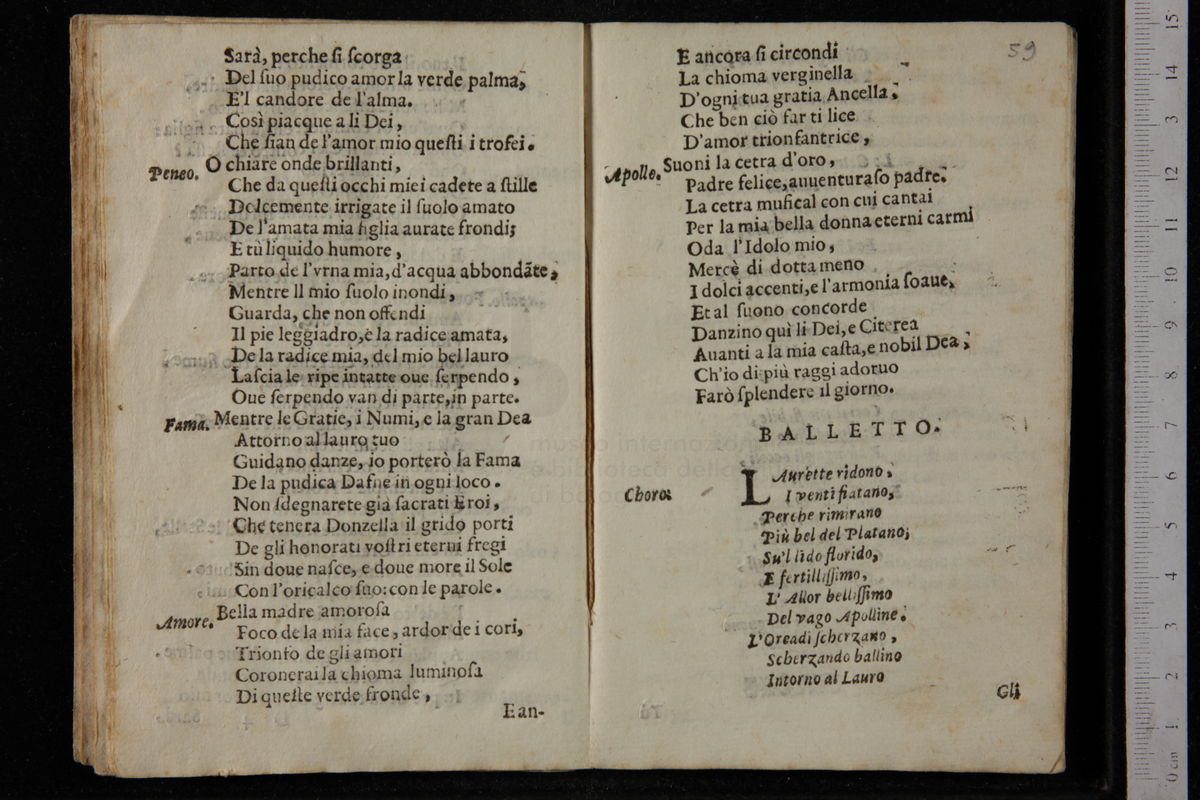 Sarà, perche ſi ſcorga
Del ſuo pudico amor la verde palma;
E'l candore de l'alma.
Così piacque a li Dei,
Che ſian de l'amor mio queſti i trofei.
Peneo. O chiare onde brillanti,
Che da queſti occhi miei cadete a ſtille
Dolcemente irrigate il ſuolo amato
De l'amata mia figlia aurate frondi;
E tù liquido humore,
Parto de l'vrna mia, d'acqua abbondãte,
Mentre Il mio ſuolo inondi,
Guarda, che non offendi
Il pie leggiadro, è la radice amata,
De la radice mia, del mio bel lauro
Laſcia le ripe intatte oue ſerpendo,
Oue ſerpendo van di parte, in parte.
Fama. Mentre le Gratie, i Numi, e la gran Dea
Attorno al lauro tuo
Guidano danze, io porterò la Fama
De la pudica Dafne in ogni loco.
Non ſdegnarete già ſacrati Eroi,
Che tenera Donzella il grido porti
De gli honorati voſtri eterni fregi
Sin doue naſce, e doue more il Sole
Con l'oricalco ſuo: con le parole.
Amore. Bella madre amoroſa
Foco de la mia face, ardor de i cori,
Trionfo de gli amori
Coronerai la chioma luminoſa
Di queſte verde fronde,
E an-
59
E ancora ſi circondi
La chioma verginella
D'ogni tua gratia Ancella;
Che ben ciò far ti lice
D'amor trionfantrice,
Apollo. Suoni la cetra d'oro,
Padre felice, auuenturaſo padre.
La cetra muſical con cui cantai
Per la mia bella donna eterni carmi
Oda l'Idolo mio,
Mercè di dotta meno
I dolci accenti, e l'armonia ſoaue,
Et al ſuono concorde
Danzino quì li Dei, e Citerea
Auanti a la mia caſta, e nobil Dea;
Ch'io di più raggi adorno
Farò ſplendere il giorno.
BALLETTO.
Choro. LAurette ridono,
I venti fiatano,
Perche rimirano
Più bel del Platano;
Su'l lido florido,
E fertiliſſimo,
L'Allor belliſſimo
Del vago Apolline.
L'Oreadi ſcherzano,
Scherzando ballino
Intorno al Lauro
Gli
museo internazion
e biblioteca della
di bolo
0 cm 1 2 3 4 5 6 7 8 9 10 11 12 3 14 15